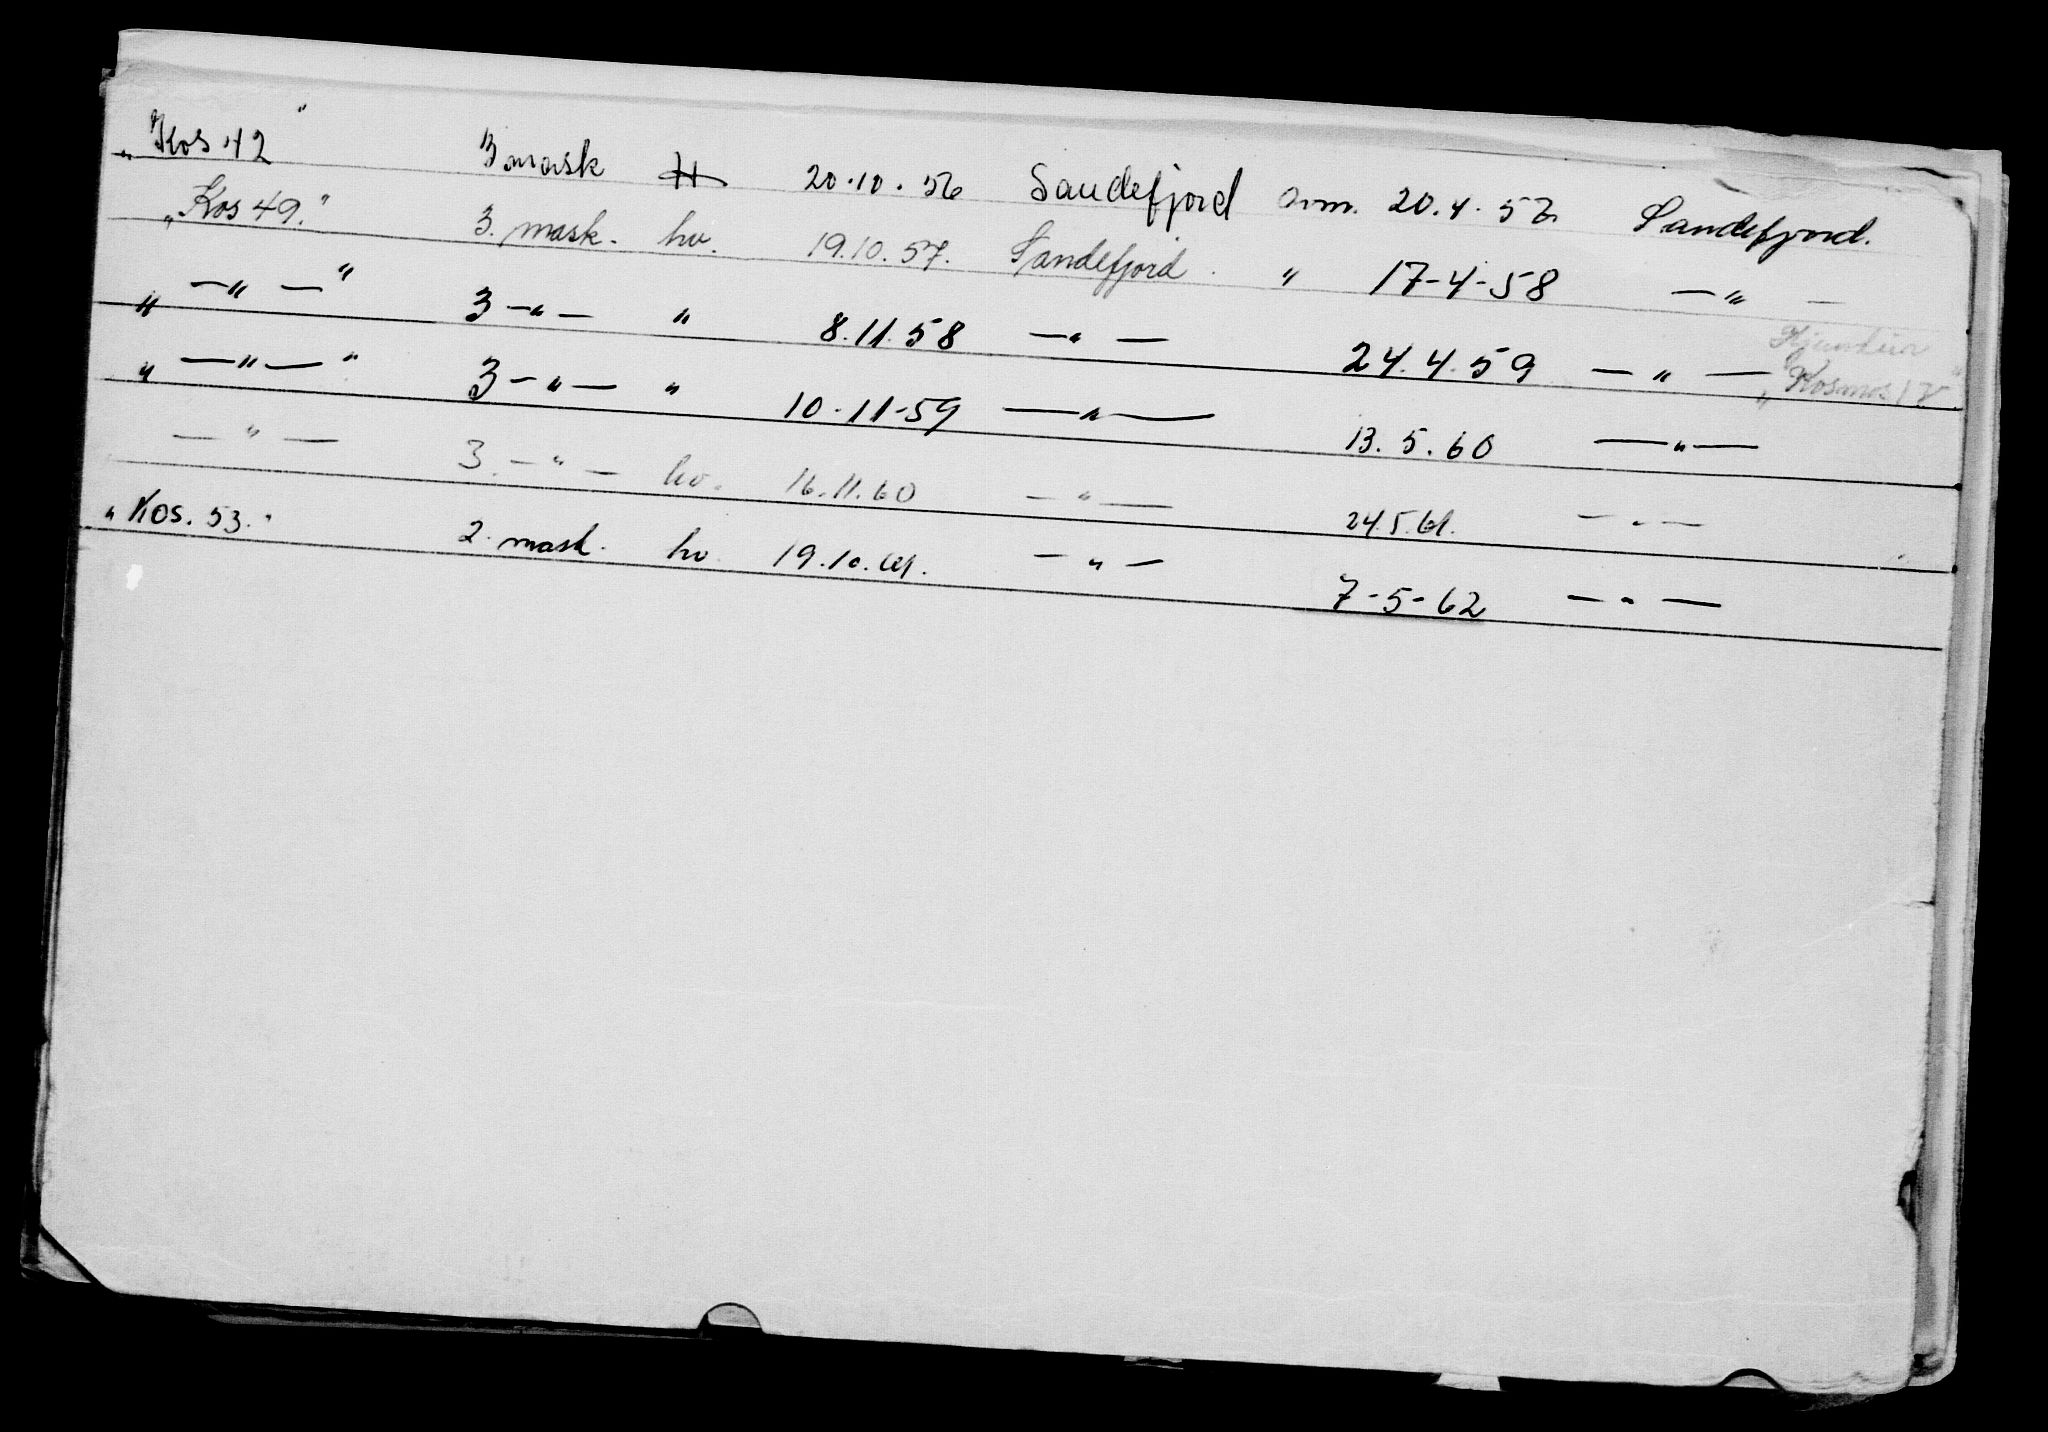 „Kos 42" 3 mask H 20.10.56 Sandefjord avm. 20.4.57 Sandefjord.
„Kos 49." 3. mask. hv. 19.10.57. Sandefjord. " 17-4-58 — " —
„ — " — " 3 — " — " 8.11.58 — " — 24.4.59 — " — „Kosmos IV"
„ — " — " 3 — " — " 10-11-59 — " — 13.5.60 — " —
— " — 3. — " — hv. 16.11.60 — " — 24.5.61. — " —
„Kos. 53." 2. mask. hv. 19.10.61. — " — 7-5-62 — " —